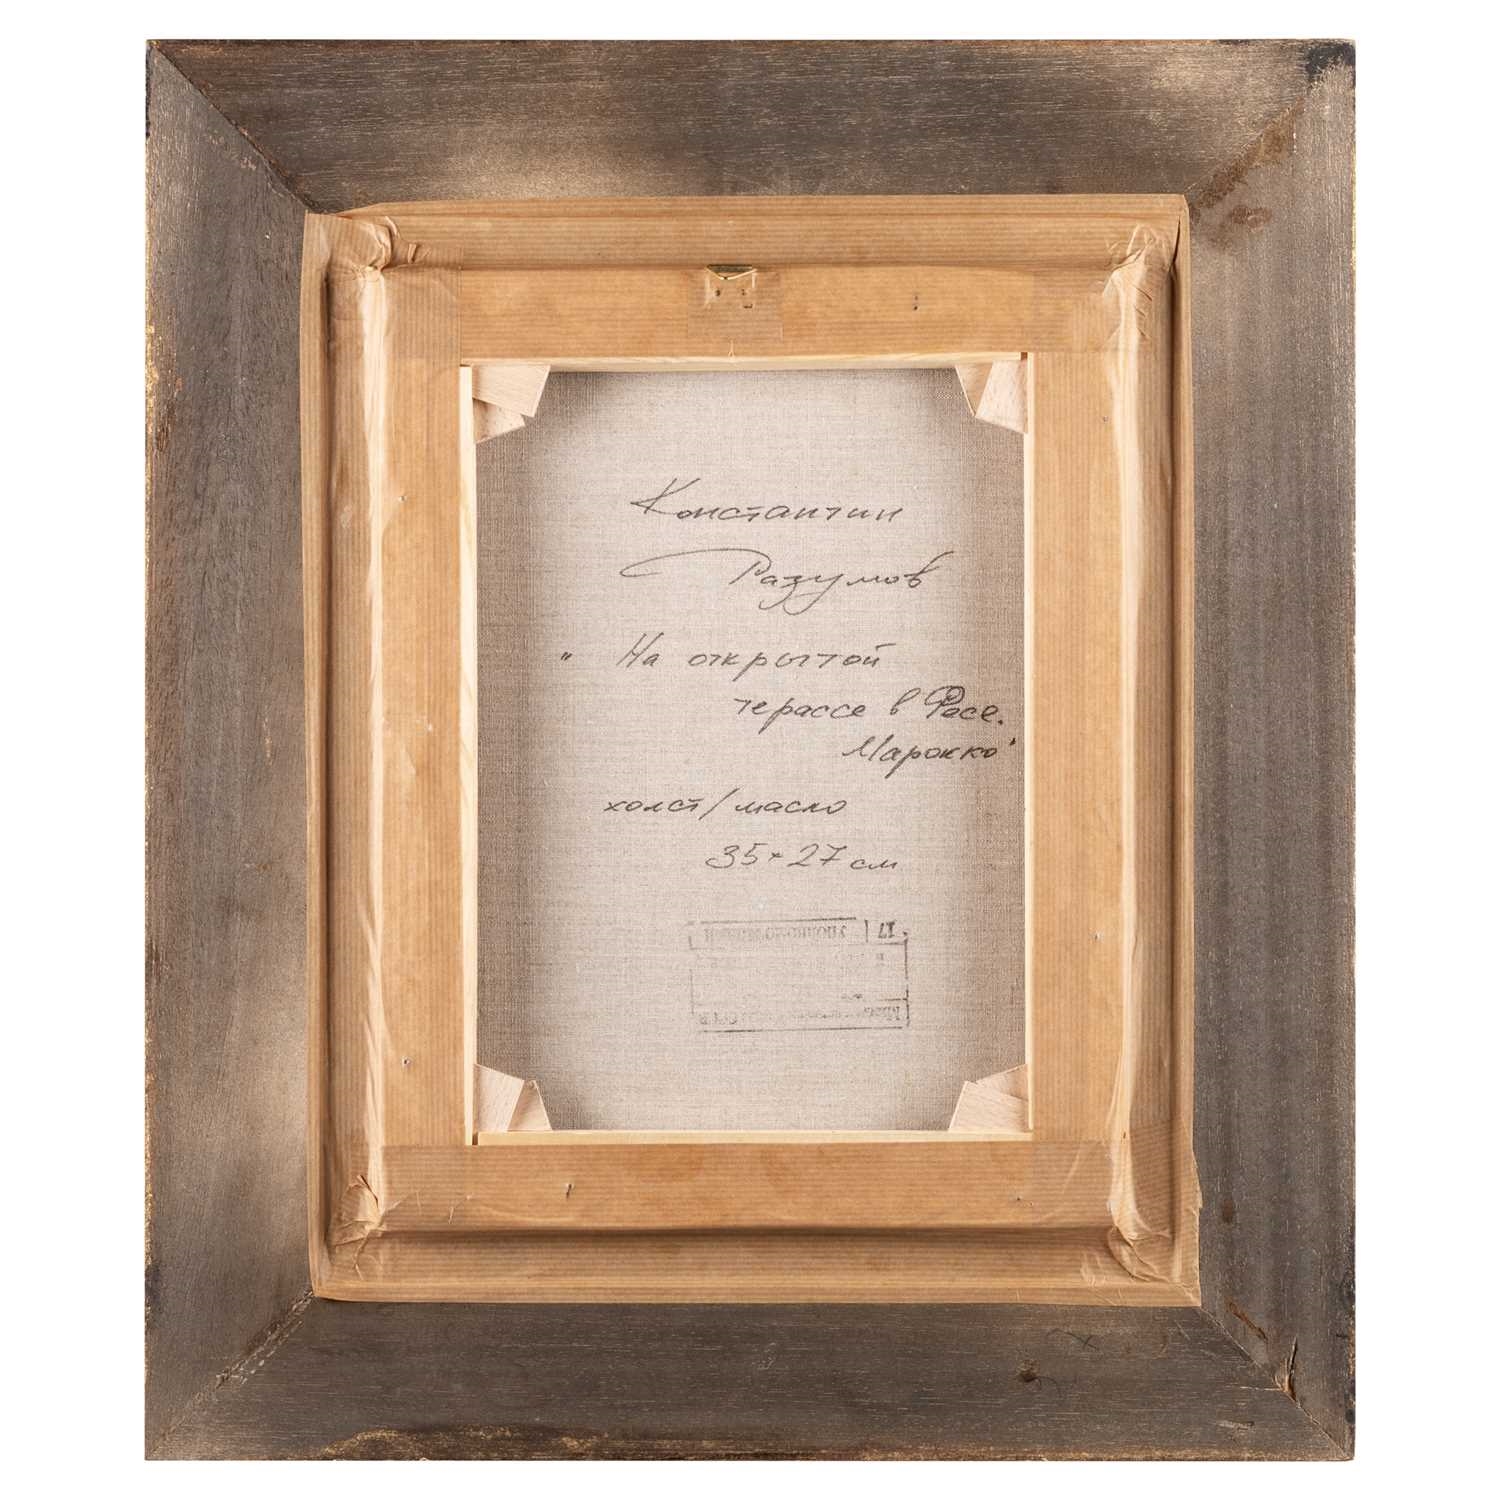 Константин
Разумов
" На открытой
терассе в Фесе.
Марокко"
холст/масло
35×27 см
17